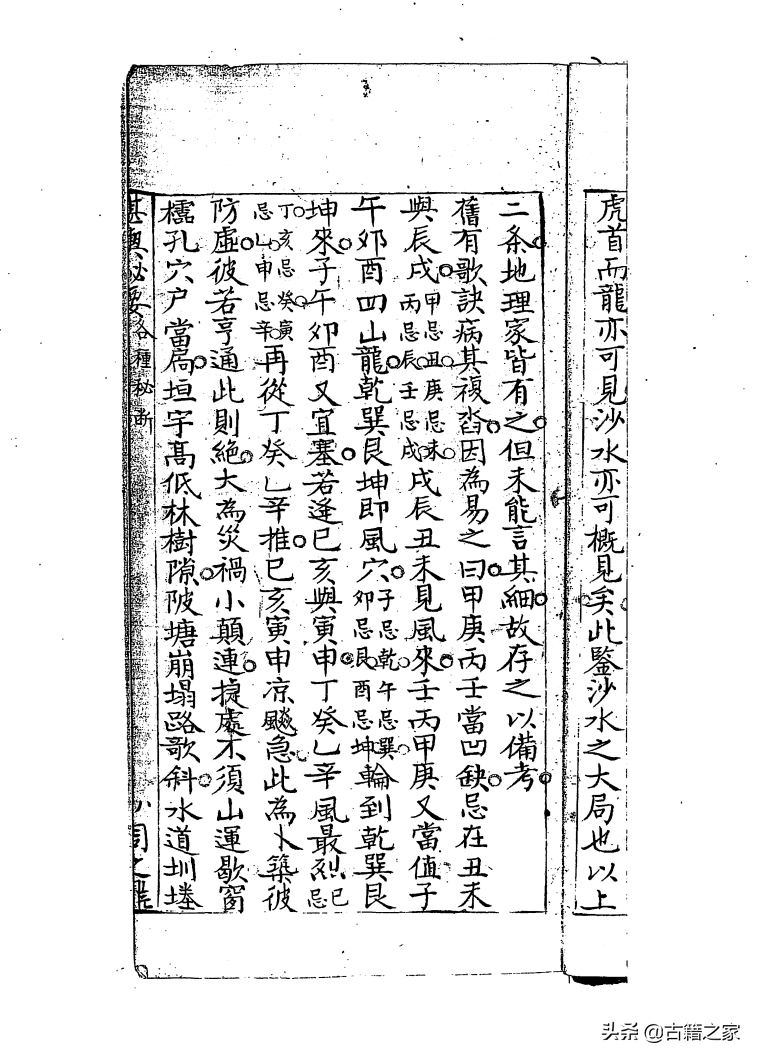 虎首而龍亦可見沙水亦可概見矣此鑒沙水之大局也以上
二条地理家皆有之但未能言其細故存之以備考
舊有歌訣病其複沓因為易之曰甲庚丙壬當凹缺忌在丑未
與辰戌甲忌丑庚忌未丙忌辰壬忌戌戌辰丑未見風來壬丙甲庚又當值子
午卯酉四山龍乾巽艮坤即風穴子忌乾午忌巽卯忌艮酉忌坤輪到乾巽艮
坤來子午卯酉又宜塞若逢巳亥與寅申丁癸乙辛風最烈巳忌
丁亥忌癸寅忌乙申忌辛再從丁癸乙辛推巳亥寅申凉颷急此為卜築彼
防虛彼若亨通此則絕大為災禍小顛連捷處不須山運歇窗
櫺孔穴户當扄垣宇髙低林樹隙陂塘崩塌路歌斜水道圳墶
堪輿秘要各種秘断
頭条 @古籍之家